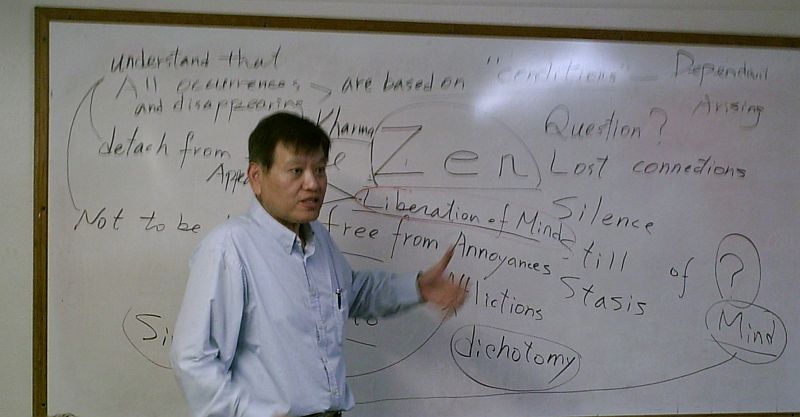 understand that
All occurrences are based on "conditions" — Dependant
and disappearing Arising
Kharma
Question?
detach from Zen Lost connections
Liberation of Mind Silence
Not to be free from Annoyances Still of ?
Afflictions Stasis
Mind
dichotomy